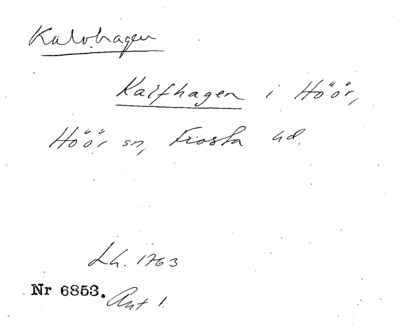 Kalvhagen
Kalfhagen i Höör,
Höör sn, Frosta hd.
Lh. 1763
Nr 6853. Akt 1.